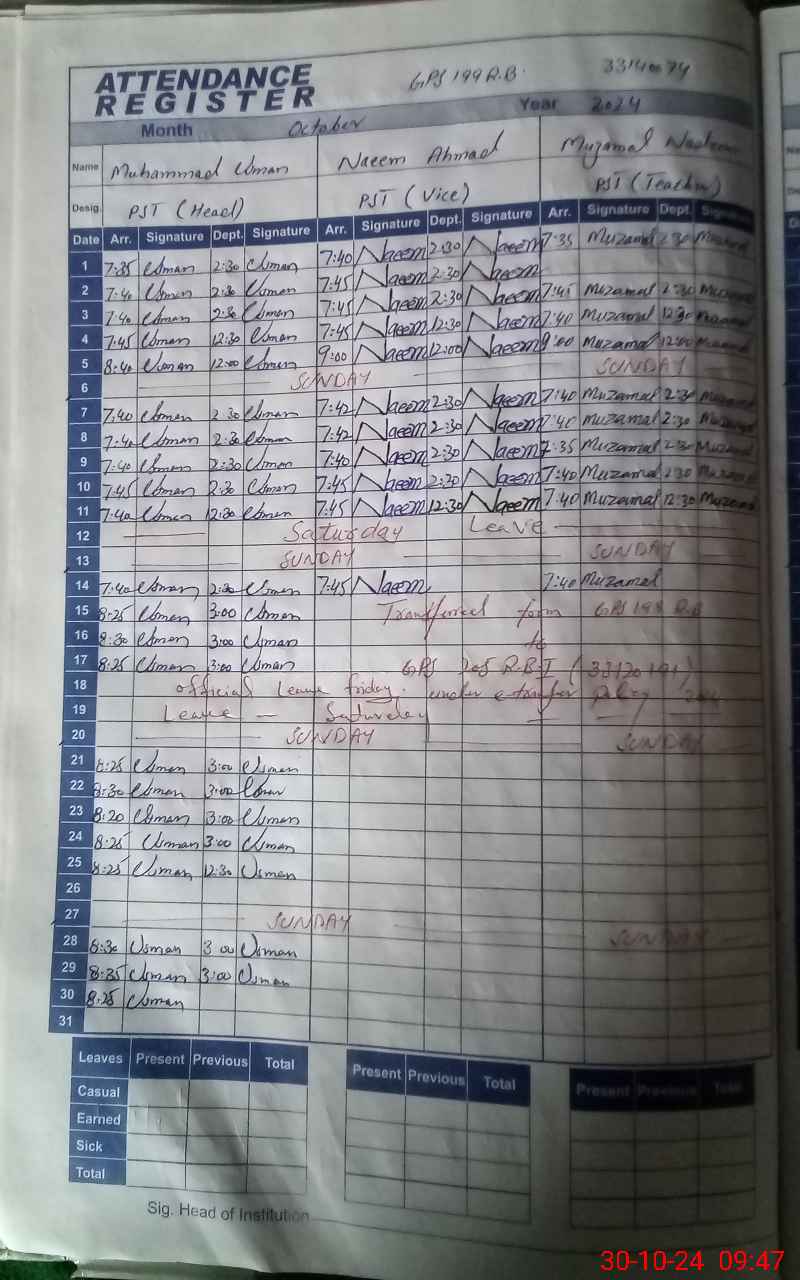 ATTENDANCE
REGISTER
GPS 199 R.B.
Year 2024
Month October
Name Muhammad Usman Naeem Ahmad Muzamal
Desig. PST (Head) PST (Vice) PST (Teacher)
Date Arr. Signature Dept. Signature Arr. Signature Dept. Signature Arr. Signature Dept. Signature
1 7:35 Usman 2:30 Usman 7:40 Naeem 2:30 Naeem 7:35 Muzamal 2:30 Muzamal
2 7:40 Usman 2:30 Usman 7:45 Naeem 2:30 Naeem
3 7:40 Usman 2:30 Usman 7:45 Naeem 2:30 Naeem 7:45 Muzamal 2:30 Muzamal
4 7:45 Usman 12:30 Usman 7:45 Naeem 12:30 Naeem 7:40 Muzamal 12:30 Muzamal
5 8:40 Usman 12:00 Usman 9:00 Naeem 12:00 Naeem 9:00 Muzamal 12:00 Muzamal
6 SUNDAY SUNDAY
7 7:40 Usman 2:30 Usman 7:42 Naeem 2:30 Naeem 7:40 Muzamal 2:30 Muzamal
8 7:40 Usman 2:30 Usman 7:42 Naeem 2:30 Naeem 7:40 Muzamal 2:30 Muzamal
9 7:40 Usman 2:30 Usman 7:40 Naeem 2:30 Naeem 7:35 Muzamal 2:30 Muzamal
10 7:45 Usman 2:30 Usman 7:45 Naeem 2:30 Naeem 7:40 Muzamal 2:30 Muzamal
11 7:40 Usman 12:30 Usman 7:45 Naeem 12:30 Naeem 7:40 Muzamal 12:30 Muzamal
12 Saturday Leave
13 SUNDAY SUNDAY
14 7:40 Usman 2:30 Usman 7:45 Naeem 7:40 Muzamal
15 8:25 Usman 3:00 Usman Transferred form GPS 199 R.B
16 8:30 Usman 3:00 Usman to
17 8:25 Usman 3:00 Usman GPS 205 R.B-I
18 official Leave friday. under e-transfer policy
19 Leave — Saturday
20 SUNDAY SUNDAY
21 8:25 Usman 3:00 Usman
22 8:30 Usman 3:00 Usman
23 8:20 Usman 3:00 Usman
24 8:25 Usman 3:00 Usman
25 8:25 Usman 12:30 Usman
26
27 SUNDAY SUNDAY
28 8:30 Usman 3:00 Usman
29 8:35 Usman 3:00 Usman
30 8:25 Usman
31
Leaves Present Previous Total Present Previous Total Present Previous Total
Casual
Earned
Sick
Total
Sig. Head of Institution
30-10-24 09:47